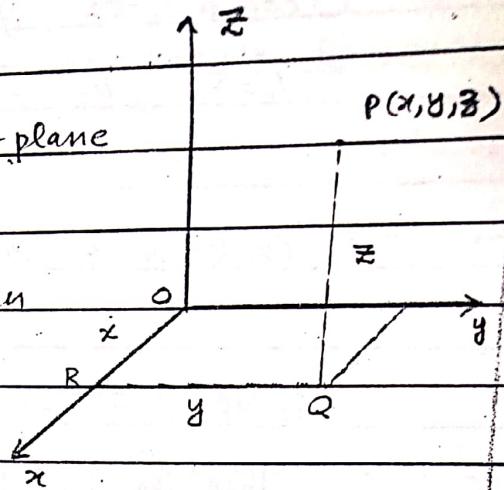 Z
P(x,y,z)
plane
z
O
x
y
R
y
Q
x